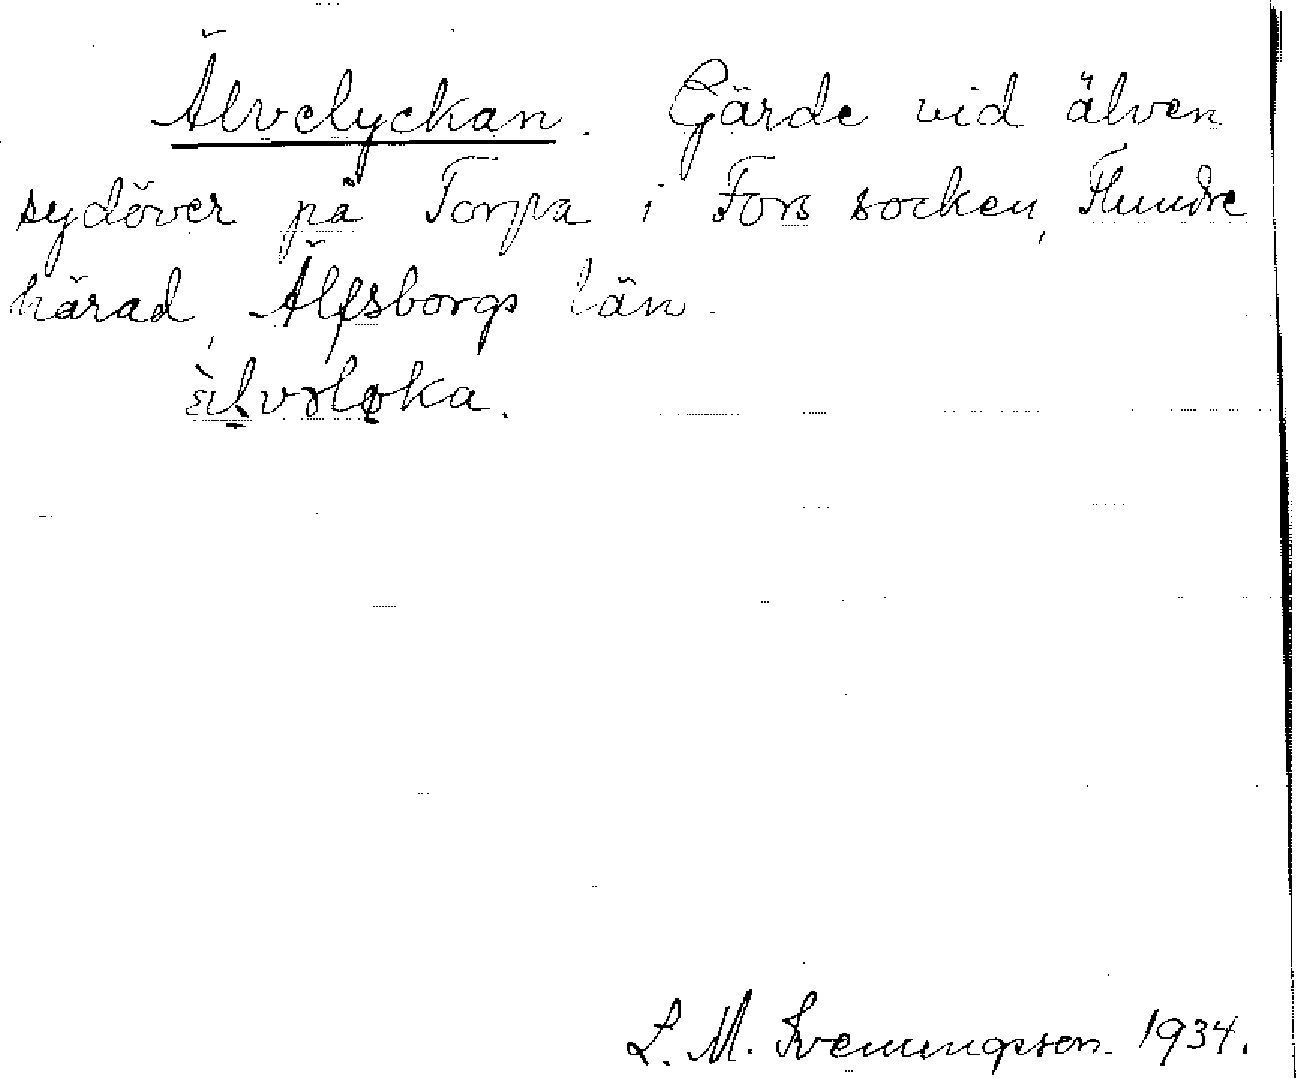 Älvelyckan. Gärde vid älven
sydöver på Torpa i Fors socken, Flundre
härad, Älfsborgs län.
L. M. Svenungsson. 1934.